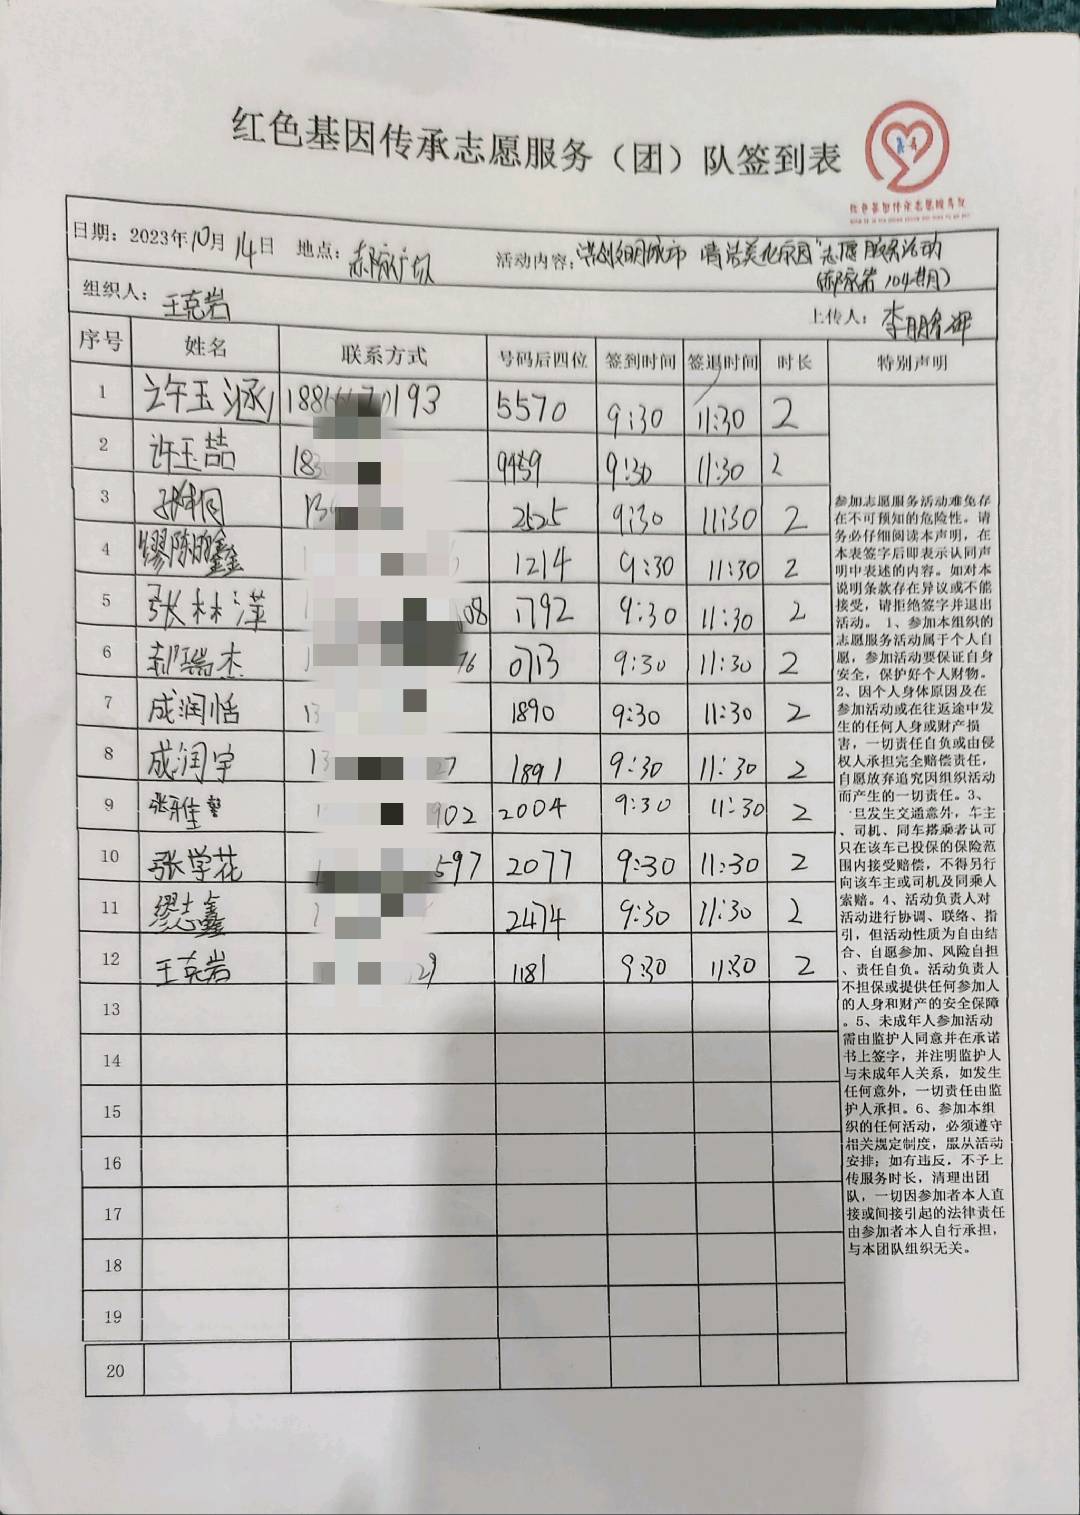 红色基因传承志愿服务（团）队签到表
红色基因传承志愿服务队
日期：2023年10月14日 地点：郝家广场 活动内容："共创文明城市 清洁美化家园"志愿服务活动
（郝家岩104期）
组织人：王克岩 上传人：李朋辉
序号 姓名 联系方式 号码后四位 签到时间 签退时间 时长 特别声明
1 许玉涵 188 0193 5570 9:30 11:30 2
2 许玉喆 18 9459 9:30 11:30 2
3 13 2525 9:30 11:30 2
4 缪陈鑫 1214 9:30 11:30 2
5 张林泽 08 1792 9:30 11:30 2
6 郝瑞杰 76 0713 9:30 11:30 2
7 成润恬 13 1890 9:30 11:30 2
8 成润宇 13 27 1891 9:30 11:30 2
9 张雅 902 2004 9:30 11:30 2
10 张学花 597 2077 9:30 11:30 2
11 缪志鑫 2474 9:30 11:30 2
12 王克岩 29 1181 9:30 11:30 2
13
14
15
16
17
18
19
20
参加志愿服务活动难免存
在不可预知的危险性。请
务必仔细阅读本声明，在
本表签字后即表示认同声
明中表述的内容。如对本
说明条款存在异议或不能
接受，请拒绝签字并退出
活动。 1、参加本组织的
志愿服务活动属于个人自
愿，参加活动要保证自身
安全，保护好个人财物。
2、因个人身体原因及在
参加活动或在往返途中发
生的任何人身或财产损
害，一切责任自负或由侵
权人承担完全赔偿责任，
自愿放弃追究因组织活动
而产生的一切责任。3、
一旦发生交通意外，车主
、司机、同车搭乘者认可
只在该车已投保的保险范
围内接受赔偿，不得另行
向该车主或司机及同乘人
索赔。4、活动负责人对
活动进行协调、联络、指
引，但活动性质为自由结
合、自愿参加、风险自担
、责任自负。活动负责人
不担保或提供任何参加人
的人身和财产的安全保障
。5、未成年人参加活动
需由监护人同意并在承诺
书上签字，并注明监护人
与未成年人关系，如发生
任何意外，一切责任由监
护人承担。6、参加本组
织的任何活动，必须遵守
相关规定制度，服从活动
安排；如有违反，不予上
传服务时长，清理出团
队，一切因参加者本人直
接或间接引起的法律责任
由参加者本人自行承担，
与本团队组织无关。